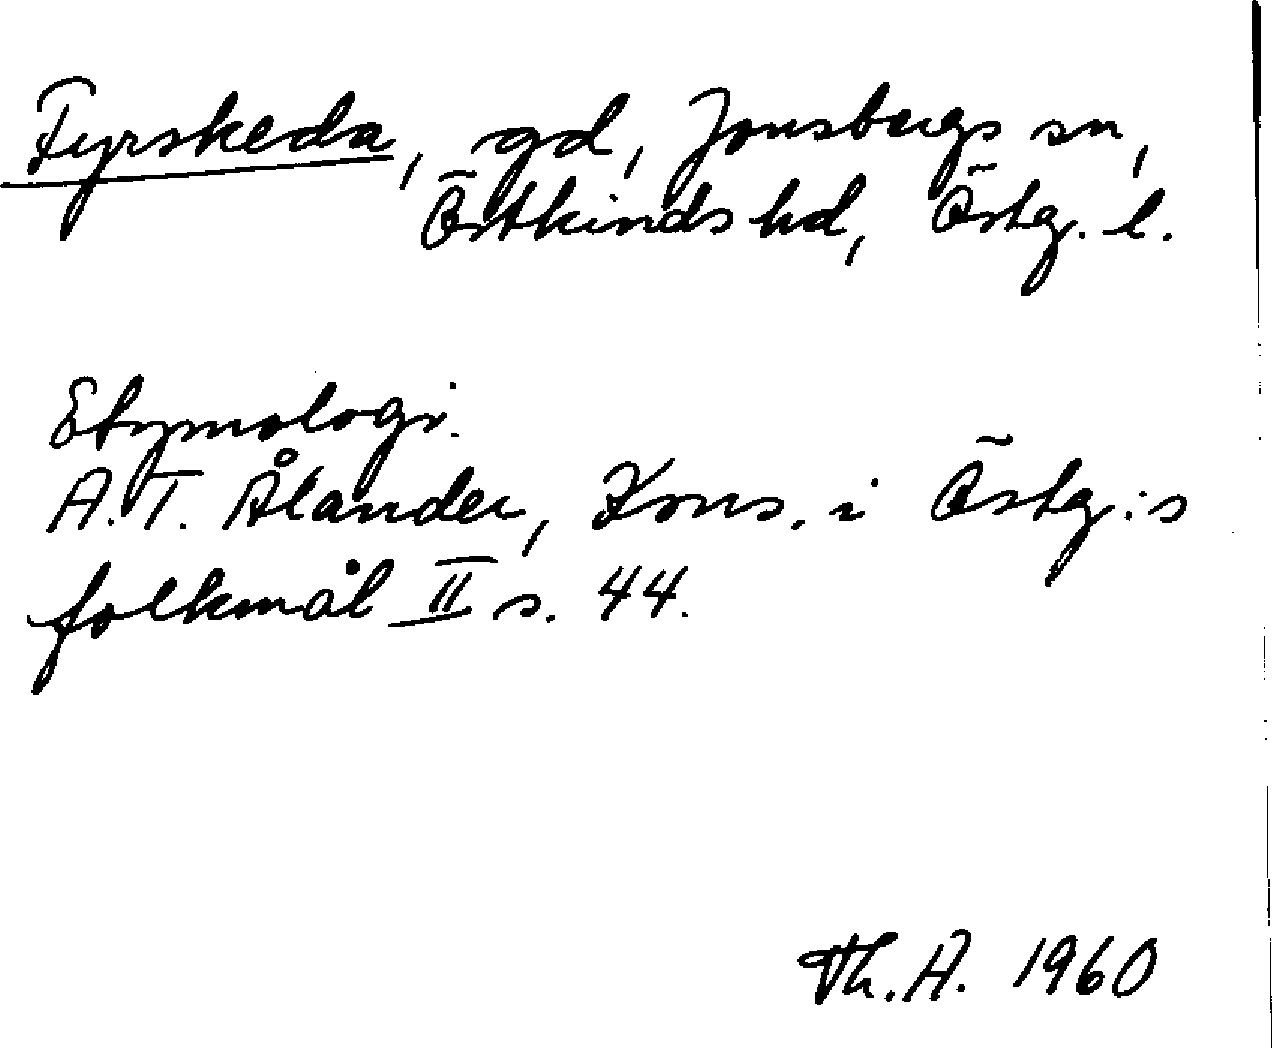 Fyrskeda, gd, Jonsbergs sn,
Östkinds hd, Östg. l.
Etymologi.
A.T. Ålander, Kons. i Östg:s
folkmål II s. 44.
Th. A. 1960